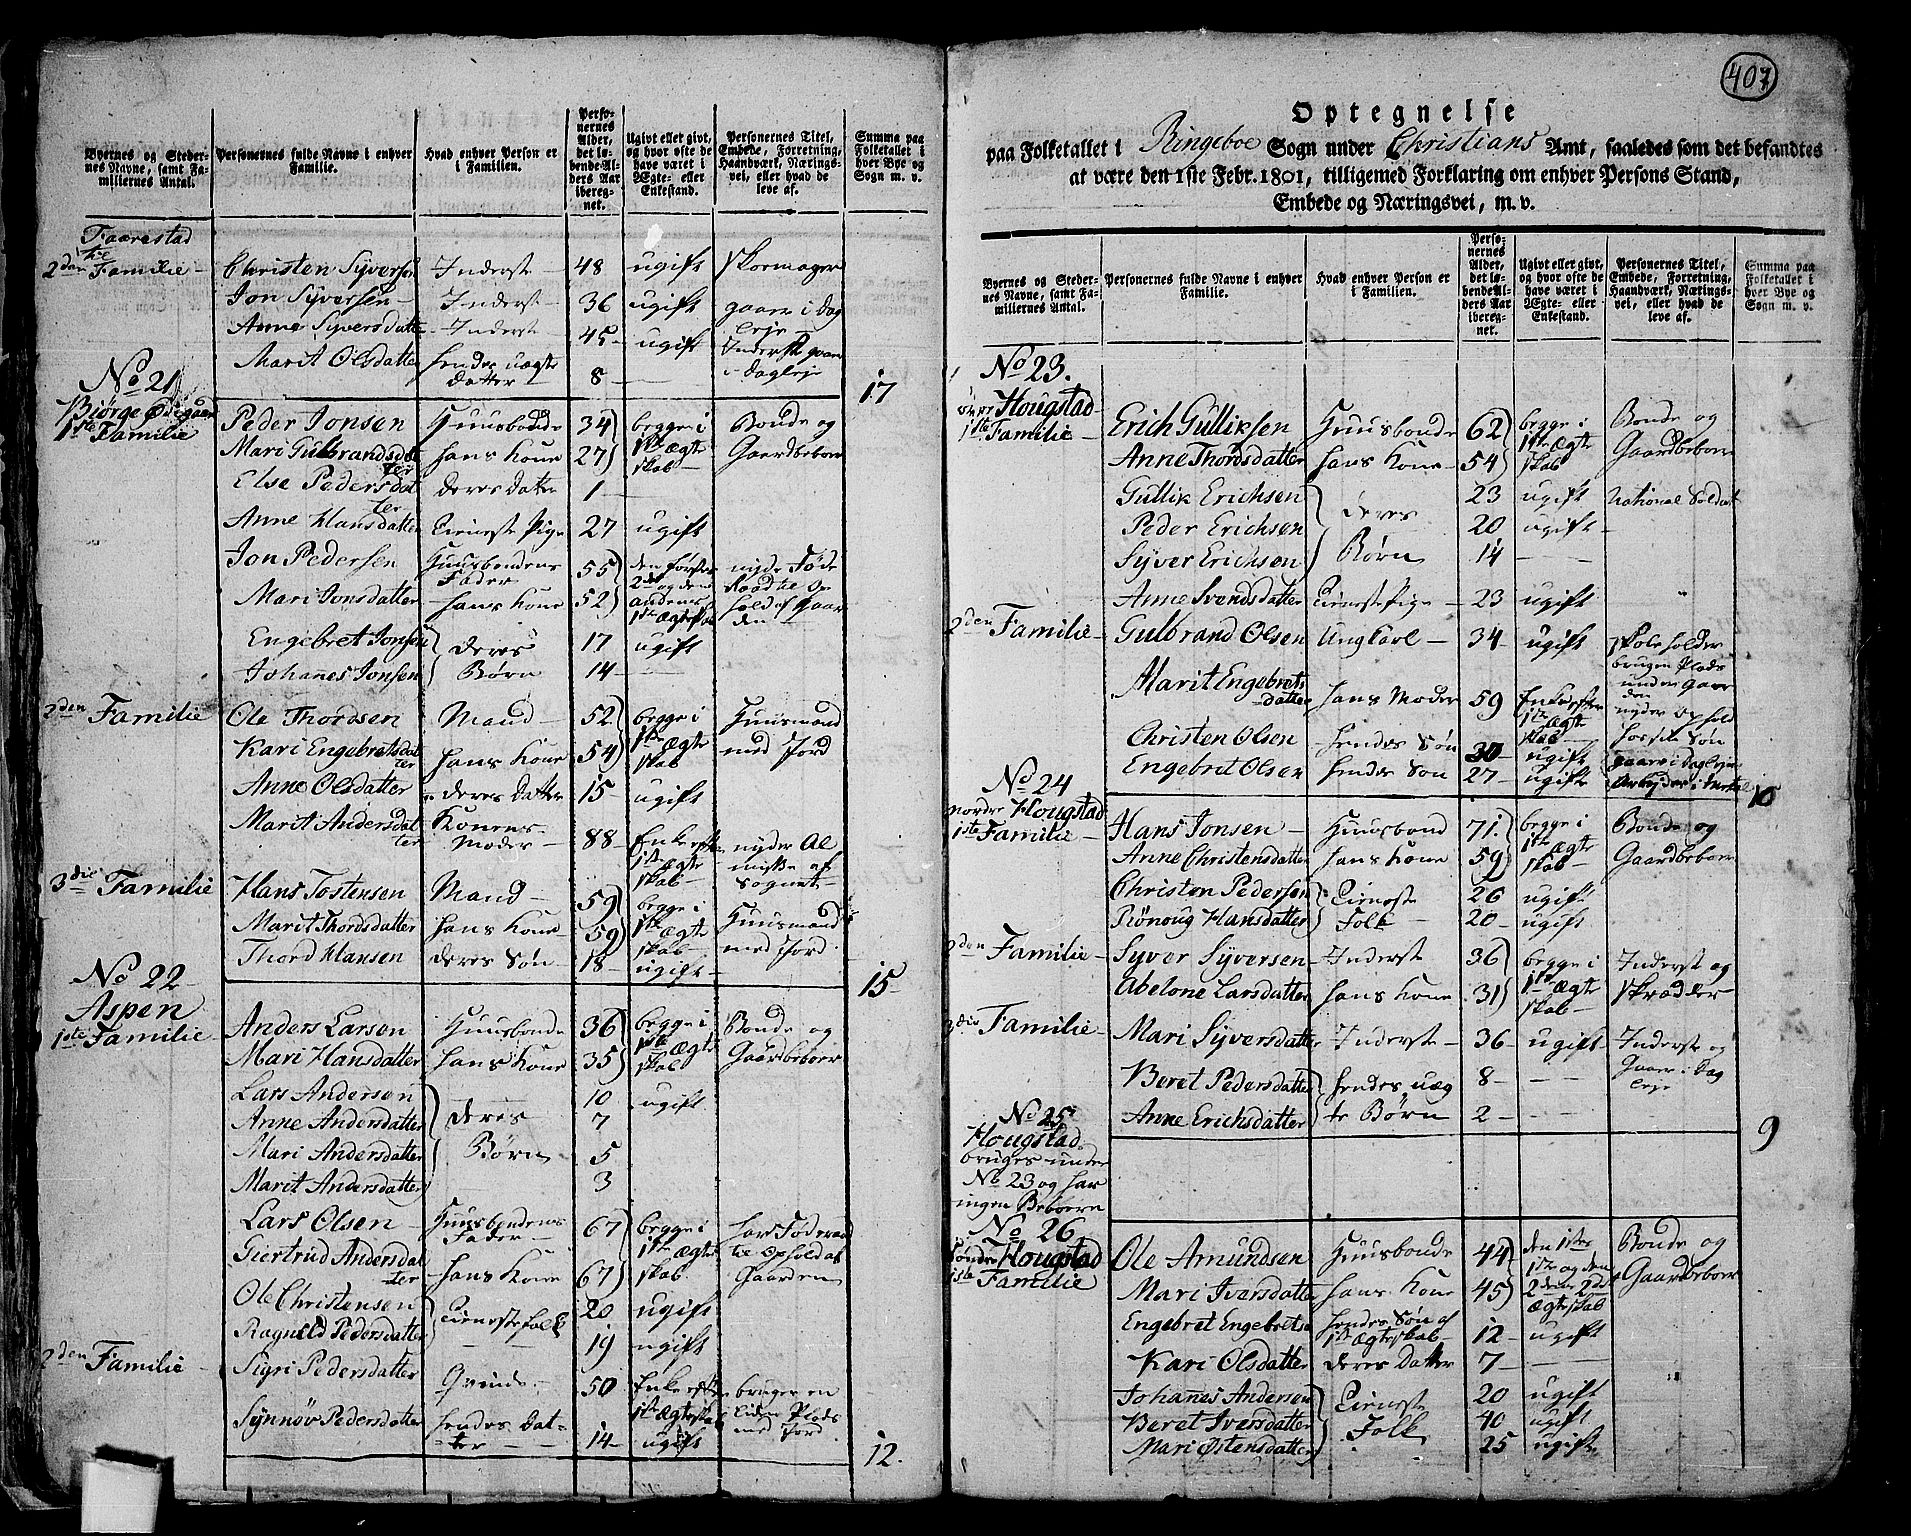 Byernes og Stedernes Navne, samt Familiernes Antal.
Personernes fulde Navne i enhver Familie.
Hvad enhver Person er i Familien.
Personernes Alder, det løbende Alders Aar iberegnet.
Ugivt eller givt, og hvor ofte de have været i Ægte- eller Enkestand.
Personernes Titel, Embede, Forretning, Haandværk, Næringsvei, eller hvad de leve af.
Summa paa Folketallet i hver Bye og Sogn m. v.
Faarestad
2den Familie - Christen Syversen Inderste - 48 ugift Skomager
Jon Syversen - Inderste - 36 ugift gaaer i Dag
Anne Syversdatter Inderste - 45 ugift leje
Marit Olsdatter hendes uægte Datter - 8 - Inderste gaaer i Dagleje
17
No 21
Biørge
1ste Familie Peder Jonsen Huusbonde 34 begge i 1ste Ægteskab Bonde og
Mari Gulbrandsdatter hans Kone 27 Gaardbeboer
Else Pedersdatter deres Datter 1 -
Anne Hansdatter Tieneste Pige 27 ugift
Jon Pedersen Huusbondens Fader 55 den første 2det og den
Mari Jonsdatter hans Kone 52 andens 1ste Ægteskab
Engebret Jonsen deres 17 ugift
Johanes Jonsen Børn 14 -
2den Familie Ole Thordsen Mand - 52 begge i 1ste Ægteskab Huusmand
Kari Engebretsdatter hans Kone 54 med Jord
Anne Olsdatter deres Datter 15 - ugift
Marit Andersdatter Konens Moder - 88 - Enke efter 1ste Ægteskab nyder Almisse af Sognet
3die Familie Hans Tostensen Mand - 59 begge i 1ste Ægteskab Huusmand
Marit Thordsdatter hans Kone 59 med Jord
Thord Hansen deres Søn 18 - ugift -
15 -
No 22
Aspen
1ste Familie - Anders Larsen Huusbonde 36 begge i 1ste Ægteskab Bonde og
Mari Hansdatter hans Kone 35 Gaardbeboer
Lars Andersen 10 ugift
Anne Andersdatter deres 7
Mari Andersdatter Børn 5
Marit Andersdatter 3
Lars Olsen Huusbondens Fader - 67 begge i 1ste Ægteskab har Føderaad
Giertrud Andersdatter hans Kone 67 til Ophold af Gaarden
Ole Christensen Tienestefolk 20 ugift
Ragnild Pedersdatter 19 ugift
2den Familie - Sigri Pedersdatter Qvinde - 50 Enke efter 1ste Ægteskab bruger en
Synnøv Pedersdatter hendes Datter 14 - ugift liden Plads med Jord
12.
407
Optegnelse
paa Folketallet i Ringeboe Sogn under Christians Amt, saaledes som det befandtes
at være den 1ste Febr. 1801, tilligemed Forklaring om enhver Persons Stand,
Embede og Næringsvei, m. v.
Byernes og Stedernes Navne, samt Familiernes Antal.
Personernes fulde Navne i enhver Familie.
Hvad enhver Person er i Familien.
Personernes Alder, det løbende Alders Aar iberegnet.
Ugivt eller givt, og hvor ofte de have været i Ægte- eller Enkestand.
Personernes Titel, Embede, Forretning, Haandværk, Næringsvei, eller hvad de leve af.
Summa paa Folketallet i hver Bye og Sogn m. v.
No 23.
Hougstad
1ste Familie - Erich Gulliksen Huusbonde 62 begge i 1ste Ægteskab Bonde og
Anne Thordsdatter hans Kone - 54 Gaardbeboer
Gullik Erichsen deres 23 ugift National Soldat
Peder Erichsen 20 ugift -
Syver Erichsen Børn 14 -
Anne Svendsdatter Tieneste Pige - 23 ugift
2den Familie - Gulbrand Olsen Ung Karl - 34 ugift Skoleholder brugen Plads under Gaarden
Marit Engebretsdatter hans Moder 59 Enke efter 1ste Ægteskab nyder Ophold hos sin Søn
Christen Olsen hendes Søn 30 - ugift gaaer i Dagleje
Engebret Olsen hendes Søn 27 - ugift
10
No 24
nordre Hougstad
1ste Familie - Hans Jonsen - Huusbond 71. begge i 1ste Ægteskab Bonde og
Anne Christensdatter hans Kone 59 Gaardbeboer
Christen Pedersen Tieneste 26 ugift
Rønoug Hansdatter Folk - 20 - ugift
2den Familie - Syver Syversen Inderste 36 begge i 1ste Ægteskab Inderst og
Abelone Larsdatter hans Kone 31 Skrædder
3die Familie - Mari Syversdatter Inderste - 36 - ugift - Inderste og
Beret Pedersdatter hendes uæg 8 - - Gaaer i Dagleje
Anne Erichsdatter te Børn 2 - -
9
No 25
Hougstad
bruges under
No 23 og har
ingen Beboere
No 26
søndre Hougstad
1ste Familie Ole Amundsen Huusbonde 44 den 1stes 1ste og den Bonde og
Mari Iversdatter hans Kone 45 2dens 2det Ægteskab Gaardbeboer
Engebret Engebretsen hendes Søn af 1ste Ægteskab - 12 - ugift
Kari Olsdatter deres Datter 7 - -
Johanes Andersen Tieneste 20 ugift
Beret Iversdatter Folk 40 ugift
Mari Østensdatter 25 ugift